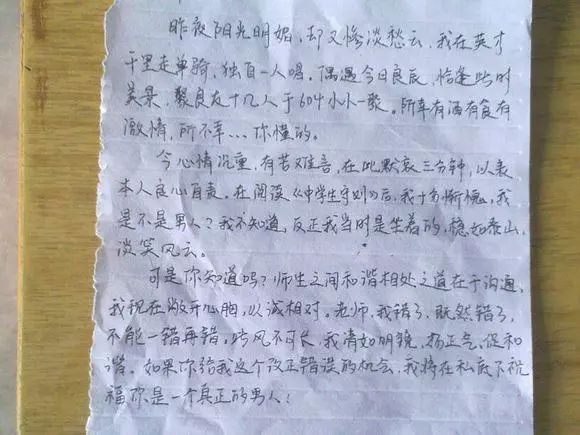 昨夜阳光明媚,却又惨淡愁云,我在英才
千里走单骑,独自一人唱,偶遇今日良辰,恰逢此时
美景,聚良友十几人于604小小一聚。所幸有酒有食有
激情,所不幸…你懂的。
今心情沉重,有苦难言,在此默哀三分钟,以表
本人良心自责。在阅读《中学生守则》后,我十分惭愧,我
是不是男人?我不知道,反正我当时是坐着的,稳如泰山,
淡笑风云。
可是你知道吗?师生之间和谐相处之道在于沟通,
我现在敞开心胸,以诚相对。老师,我错了,既然错了,
不能一错再错,此风不可长,我清如明镜,扬正气,促和
谐。如果你给我这个改正错误的机会,我将在私底下祝
福你是一个真正的男人!